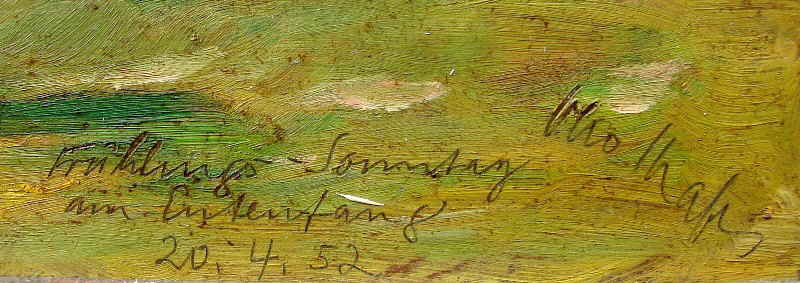 Frühlings-Sonntag
am Entenfang
20.4.52
Otto